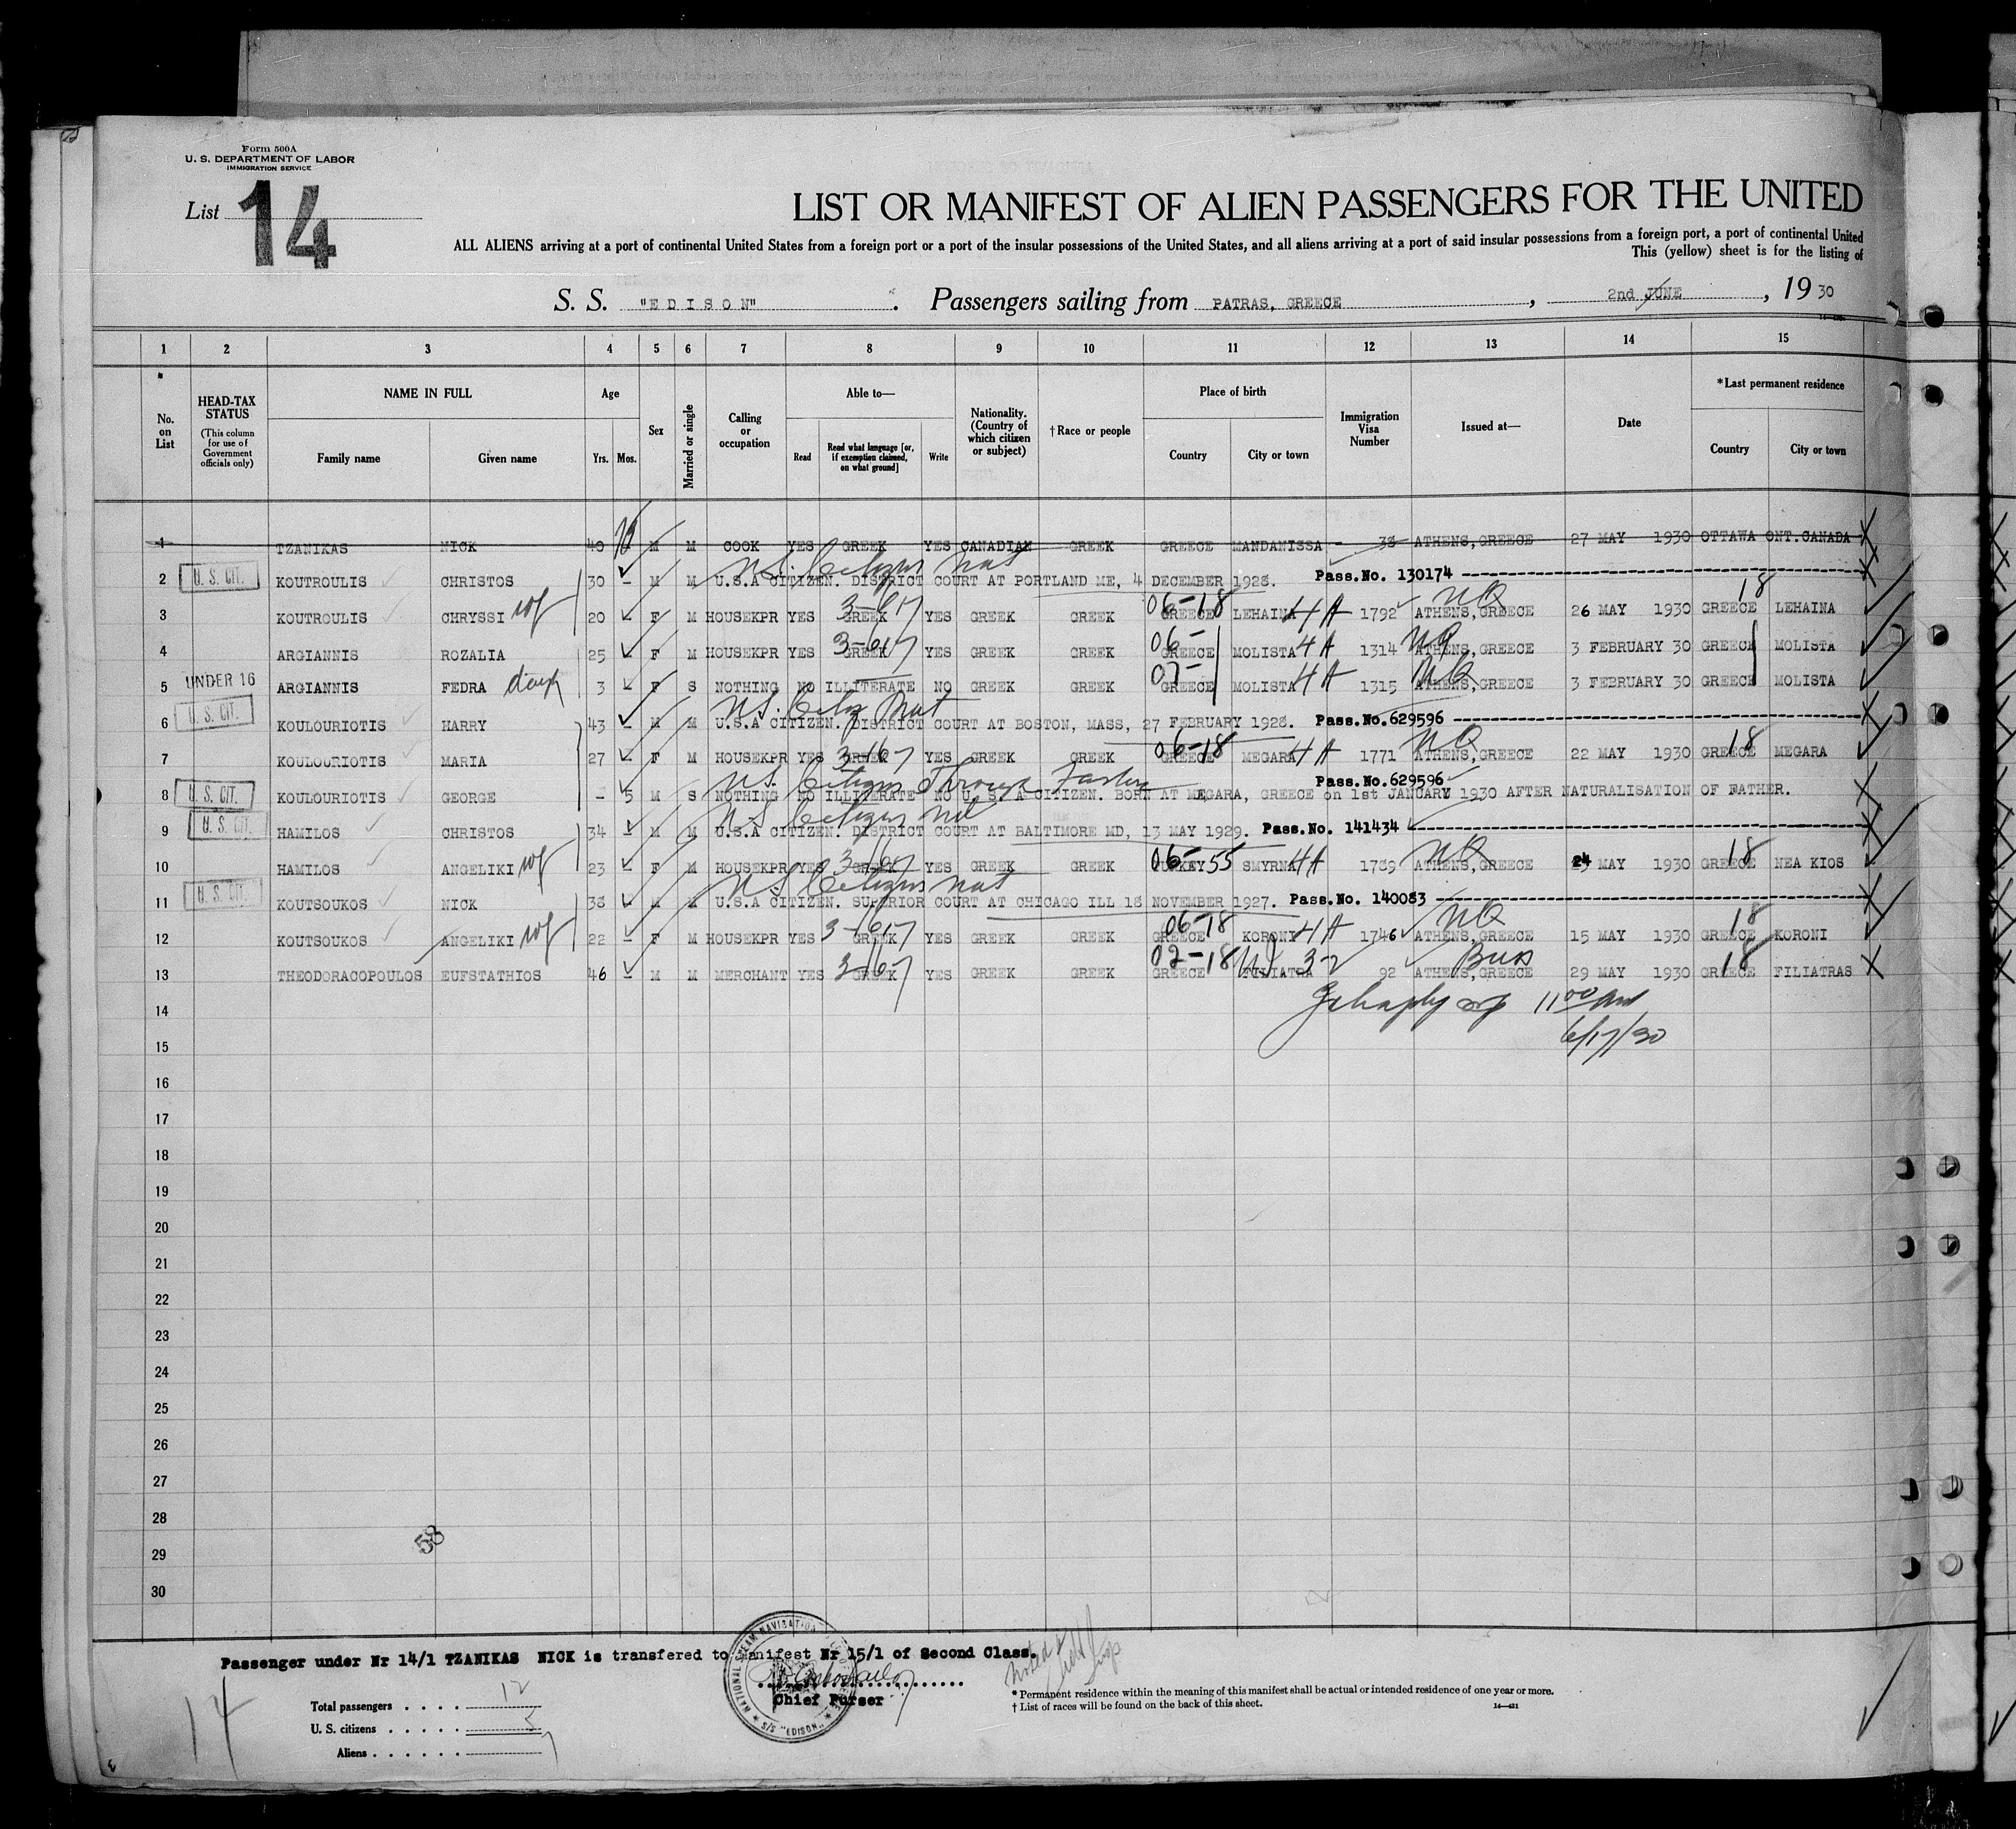 Form 500A
U. S. DEPARTMENT OF LABOR
IMMIGRATION SERVICE
List 14
LIST OR MANIFEST OF ALIEN PASSENGERS FOR THE UNITED
ALL ALIENS arriving at a port of continental United States from a foreign port or a port of the insular possessions of the United States, and all aliens arriving at a port of said insular possessions from a foreign port, a port of continental United
This (yellow) sheet is for the listing of
S. S. "EDISON" . Passengers sailing from PATRAS, GREECE , 2nd JUNE , 19 30
1 2 3 4 5 6 7 8 9 10 11 12 13 14 15
No. on List
HEAD-TAX STATUS (This column for use of Government officials only)
NAME IN FULL
Family name Given name
Age
Yrs. Mos.
Sex
Married or single
Calling or occupation
Able to—
Read Read what language [or, if exemption claimed, on what ground] Write
Nationality. (Country of which citizen or subject)
†Race or people
Place of birth
Country City or town
Immigration Visa Number
Issued at—
Date
*Last permanent residence
Country City or town
1 TZANIKAS NICK 40 M M COOK YES GREEK YES CANADIAN GREEK GREECE MANDANISSA - 38 ATHENS,GREECE 27 MAY 1930 OTTAWA ONT.CANADA
U.S. Citizen Nat
2 U. S. CIT. KOUTROULIS CHRISTOS 30 – M M U.S.A CITIZEN. DISTRICT COURT AT PORTLAND ME, 4 DECEMBER 1928. Pass.No. 130174
3-617 06-18 NQ 18
3 KOUTROULIS CHRYSSI wf 20 – F M HOUSEKPR YES GREEK YES GREEK GREEK GREECE LEHAINA 4A 1792 ATHENS,GREECE 26 MAY 1930 GREECE LEHAINA
3-617 06- NQ
4 ARGIANNIS ROZALIA 25 – F M HOUSEKPR YES GREEK YES GREEK GREEK GREECE MOLISTA 4A 1314 ATHENS,GREECE 3 FEBRUARY 30 GREECE MOLISTA
07- NQ
5 UNDER 16 ARGIANNIS FEDRA daug 3 – F S NOTHING NO ILLITERATE NO GREEK GREEK GREECE MOLISTA 4A 1315 ATHENS,GREECE 3 FEBRUARY 30 GREECE MOLISTA
U.S. Citz Nat
6 U. S. CIT. KOULOURIOTIS HARRY 43 – M M U.S.A CITIZEN. DISTRICT COURT AT BOSTON, MASS, 27 FEBRUARY 1928. Pass.No.629596
3-167 06-18 NQ 18
7 KOULOURIOTIS MARIA 27 – F M HOUSEKPR YES GREEK YES GREEK GREEK GREECE MEGARA 4A 1771 ATHENS,GREECE 22 MAY 1930 GREECE MEGARA
U.S. Citizen Through Father Pass.No.629596
8 U. S. CIT. KOULOURIOTIS GEORGE – 5 M S NOTHING NO ILLITERATE NO U.S.A CITIZEN. BORN AT MEGARA, GREECE on 1st JANUARY 1930 AFTER NATURALISATION OF FATHER.
U.S Citizen Nat
9 U. S. CIT. HAMILOS CHRISTOS 34 – M M U.S.A CITIZEN. DISTRICT COURT AT BALTIMORE MD, 13 MAY 1929. Pass.No. 141434
3-167 06- 55 NQ 18
10 HAMILOS ANGELIKI wf 23 – F M HOUSEKPR YES GREEK YES GREEK GREEK TURKEY SMYRNA 4A 1789 ATHENS,GREECE 24 MAY 1930 GREECE NEA KIOS
U.S Citizen Nat
11 U. S. CIT. KOUTSOUKOS NICK 38 – M M U.S.A CITIZEN. SUPERIOR COURT AT CHICAGO ILL 18 NOVEMBER 1927. Pass.No. 140083
3-617 06-18 NQ 18
12 KOUTSOUKOS ANGELIKI wf 22 – F M HOUSEKPR YES GREEK YES GREEK GREEK GREECE KORONI 4A 1746 ATHENS,GREECE 15 MAY 1930 GREECE KORONI
3-167 02-18 3-2 Bus 18
13 THEODORACOPOULOS EUFSTATHIOS 46 – M M MERCHANT YES GREEK YES GREEK GREEK GREECE FILIATRA 92 ATHENS,GREECE 29 MAY 1930 GREECE FILIATRAS
14 11 00 am
15 6/17/30
16
17
18
19
20
21
22
23
24
25
26
27
28
58
29
30
Passenger under Nr 14/1 TZANIKAS NICK is transfered to manifest Nr 15/1 of Second Class.
Chief Purser
S/S "EDISON"
14
Total passengers . . . . 12
U. S. citizens . . . . . 5
Aliens . . . . . . 7
*Permanent residence within the meaning of this manifest shall be actual or intended residence of one year or more.
† List of races will be found on the back of this sheet.
14—431